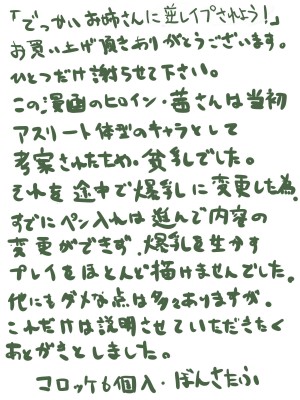 「でっかいお姉さんに逆レイプされよう！」
お買い上げ頂きありがとうございます。
ひとつだけ謝らせて下さい。
この漫画のヒロイン・茜さんは当初
アスリート体型のキャラとして
考案されたため、貧乳でした。
それを途中で爆乳に変更した為、
すでにペン入れは進んで内容の
変更ができず、爆乳を生かす
プレイをほとんど描けませんでした。
他にもダメな点は多々ありますが、
これだけは説明させていただきたく
あとがきとしました。
コロッケ6個入・ぼんさたふ